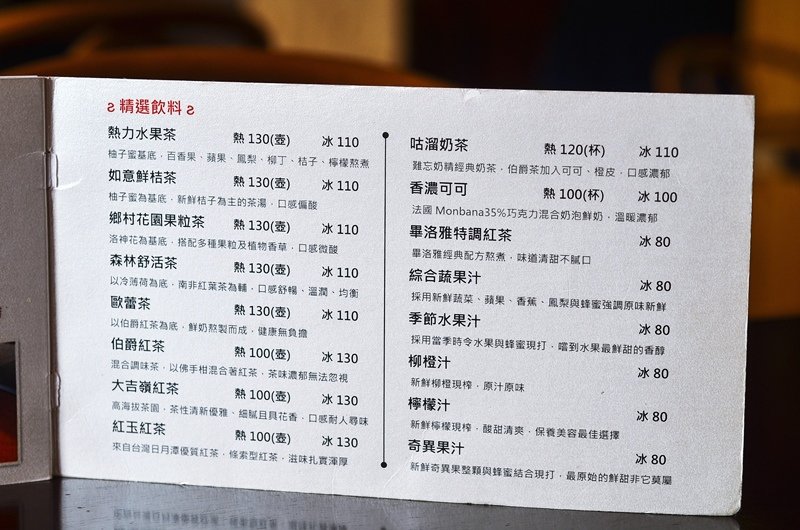 精選飲料
熱力水果茶 熱 130(壺) 冰 110
柚子蜜基底，百香果、蘋果、鳳梨、柳丁、桔子、檸檬熬煮
如意鮮桔茶 熱 130(壺) 冰 110
柚子蜜為基底，新鮮桔子為主的茶湯，口感偏酸
鄉村花園果粒茶 熱 130(壺) 冰 110
洛神花為基底，搭配多種果粒及植物香草，口感微酸
森林舒活茶 熱 130(壺) 冰 110
以冷薄荷為底，南非紅葉茶為輔，口感舒暢、溫潤、均衡
歐蕾茶 熱 130(壺) 冰 110
以伯爵紅茶為底，鮮奶熬製而成，健康無負擔
伯爵紅茶 熱 100(壺) 冰 130
混合調味茶，以佛手柑混合著紅茶，茶味濃郁無法忽視
大吉嶺紅茶 熱 100(壺) 冰 130
高海拔茶園，茶性清新優雅、細膩且具花香，口感耐人尋味
紅玉紅茶 熱 100(壺) 冰 130
來自台灣日月潭優質紅茶，條索型紅茶，滋味扎實渾厚
咕溜奶茶 熱 120(杯) 冰 110
難忘奶精經典奶茶，伯爵茶加入可可、橙皮，口感濃郁
香濃可可 熱 100(杯) 冰 100
法國 Monbana35%巧克力混合奶泡鮮奶，溫暖濃郁
畢洛雅特調紅茶 冰 80
畢洛雅經典配方熬煮，味道清甜不膩口
綜合蔬果汁 冰 80
採用新鮮蔬菜、蘋果、香蕉、鳳梨與蜂蜜強調原味新鮮
季節水果汁 冰 80
採用當季時令水果與蜂蜜現打，嚐到水果最鮮甜的香醇
柳橙汁 冰 80
新鮮柳橙現榨，原汁原味
檸檬汁 冰 80
新鮮檸檬現榨，酸甜清爽，保養美容最佳選擇
奇異果汁 冰 80
新鮮奇異果整顆與蜂蜜結合現打，最原始的鮮甜非它莫屬